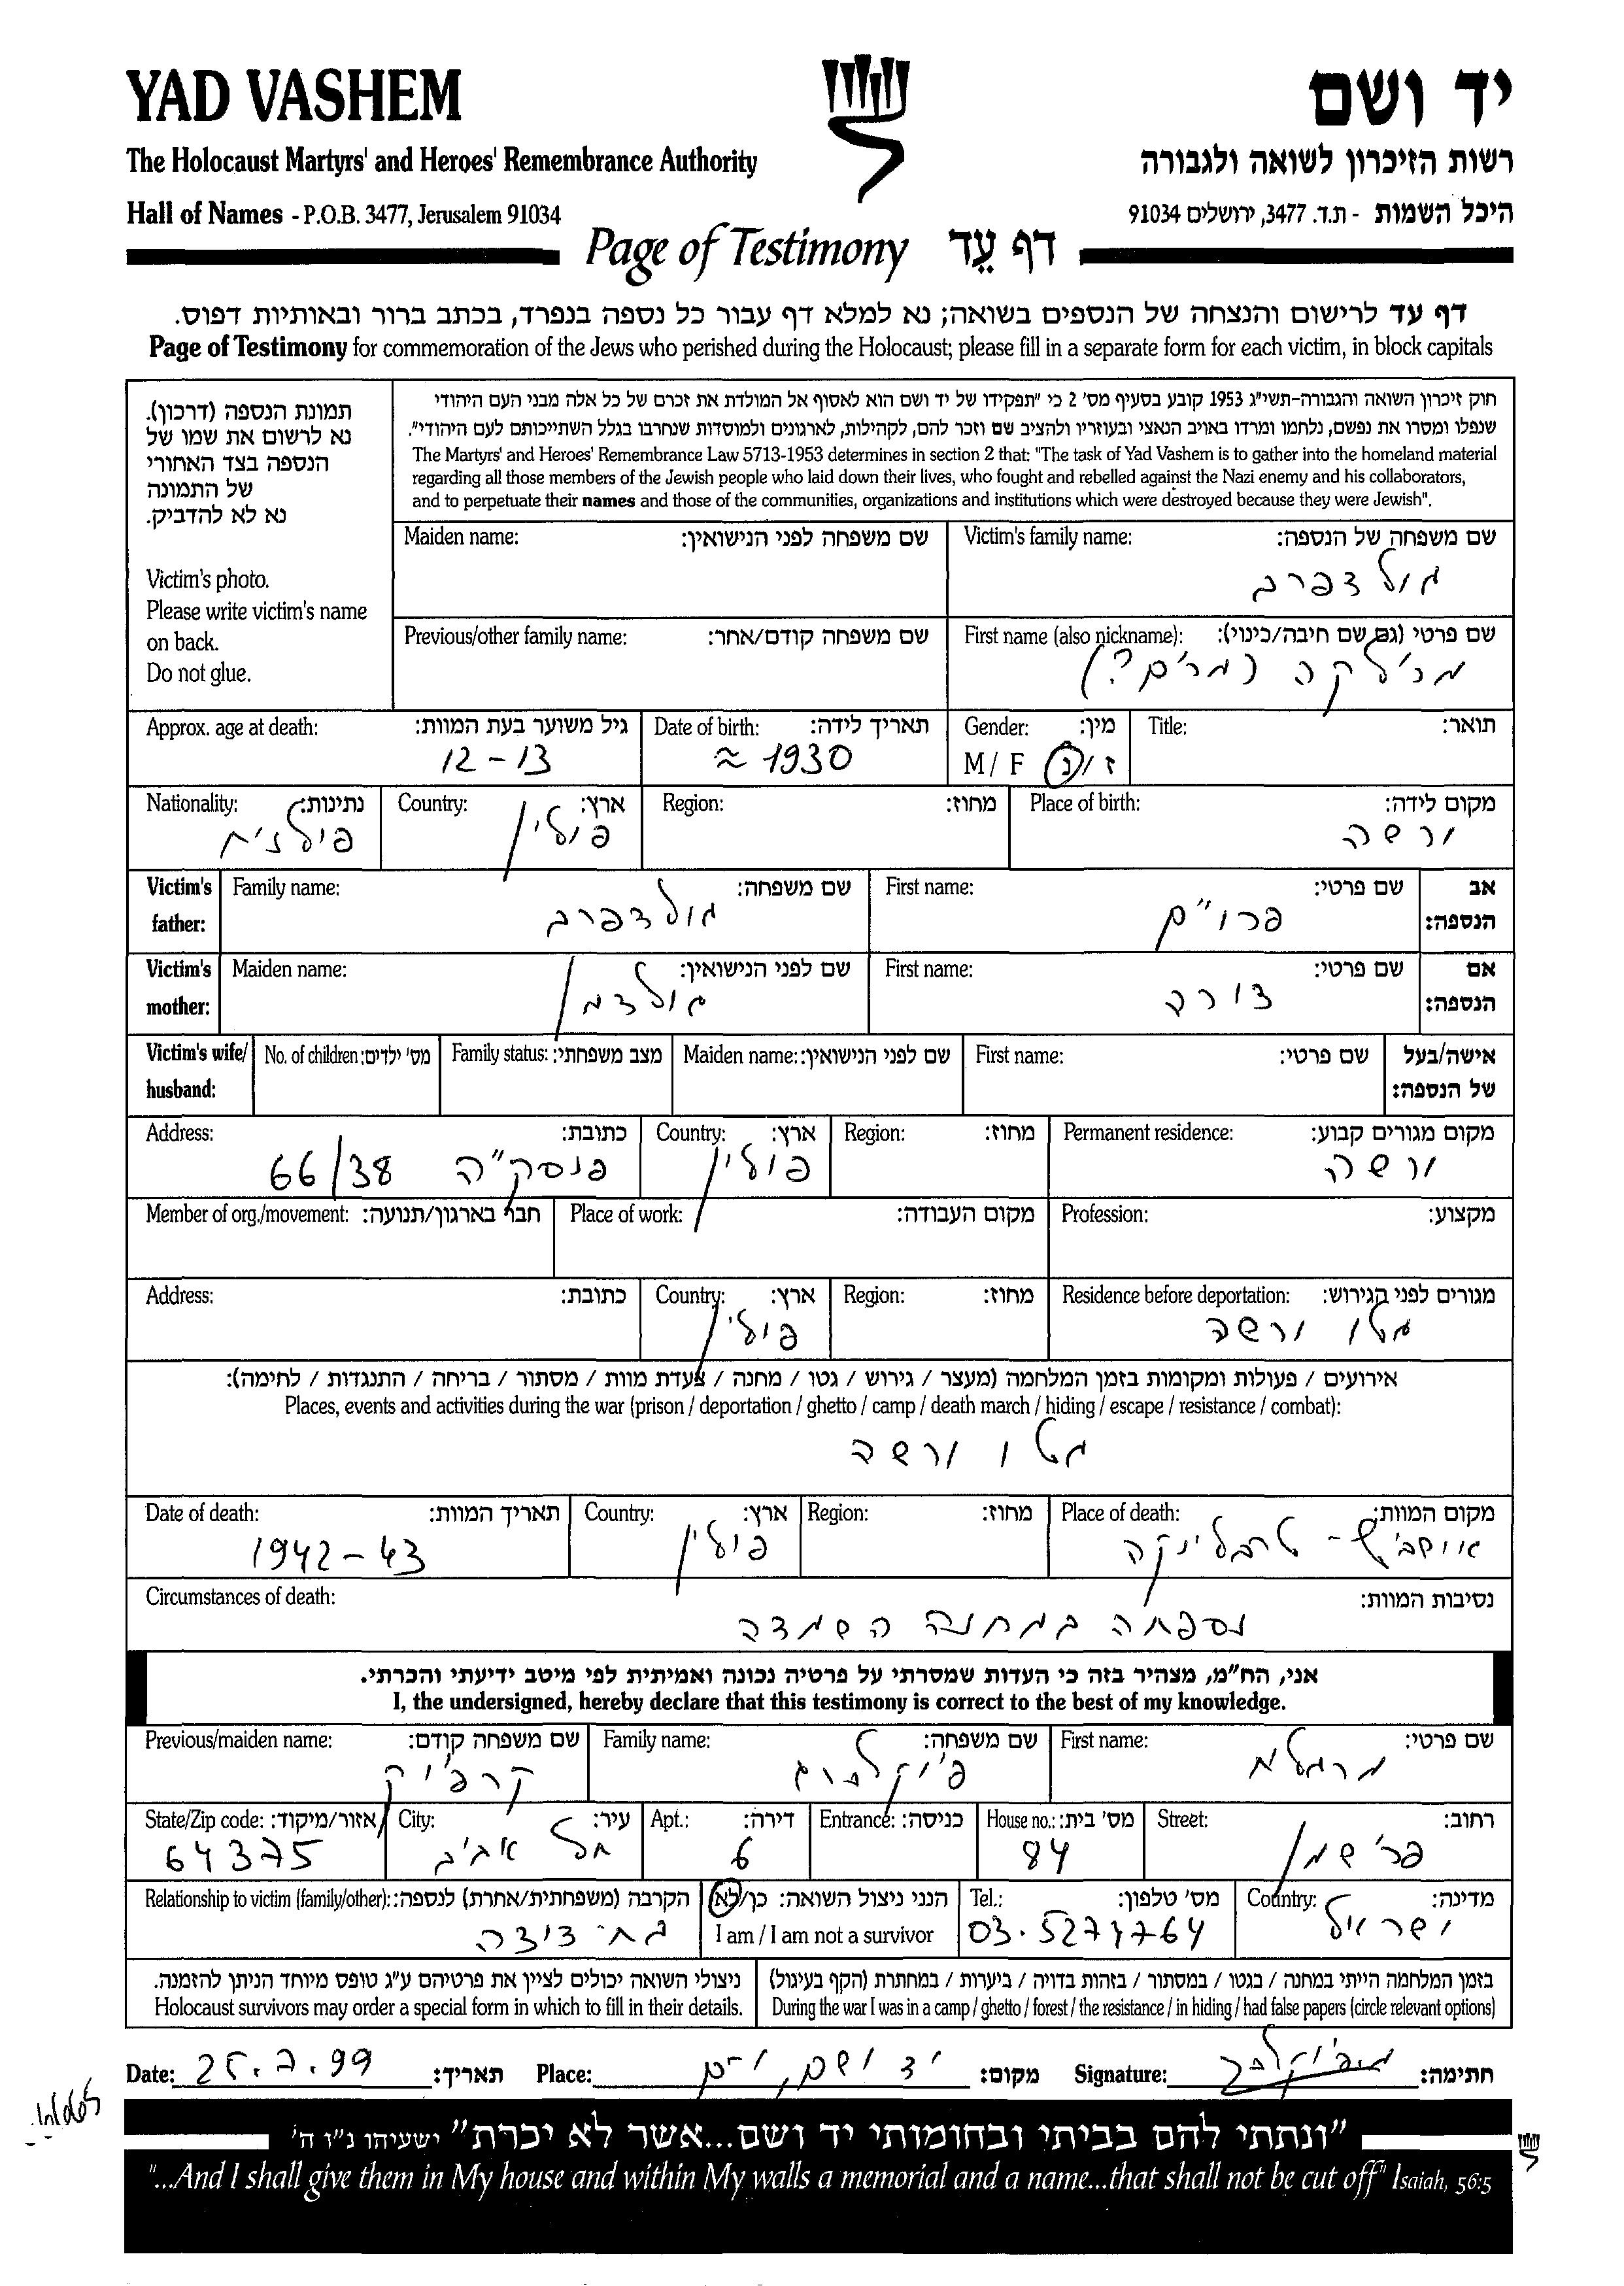 YAD VASHEM
יד ושם
The Holocaust Martyrs' and Heroes' Remembrance Authority
רשות הזיכרון לשואה ולגבורה
Hall of Names - P.O.B. 3477, Jerusalem 91034
היכל השמות - ת.ד. 3477, ירושלים 91034
Page of Testimony דף עֵד
דף עד לרישום והנצחה של הנספים בשואה; נא למלא דף עבור כל נספה בנפרד, בכתב ברור ובאותיות דפוס.
Page of Testimony for commemoration of the Jews who perished during the Holocaust; please fill in a separate form for each victim, in block capitals
תמונת הנספה (דרכון).
נא לרשום את שמו של
הנספה בצד האחורי
של התמונה
נא לא להדביק.
Victim's photo.
Please write victim's name
on back.
Do not glue.
חוק זיכרון השואה והגבורה-תשי"ג 1953 קובע בסעיף מס' 2 כי "תפקידו של יד ושם הוא לאסוף אל המולדת את זכרם של כל אלה מבני העם היהודי
שנפלו ומסרו את נפשם, נלחמו ומרדו באויב הנאצי ובעוזריו ולהציב שם וזכר להם, לקהילות, לארגונים ולמוסדות שנחרבו בגלל השתייכותם לעם היהודי".
The Martyrs' and Heroes' Remembrance Law 5713-1953 determines in section 2 that: "The task of Yad Vashem is to gather into the homeland material
regarding all those members of the Jewish people who laid down their lives, who fought and rebelled against the Nazi enemy and his collaborators,
and to perpetuate their names and those of the communities, organizations and institutions which were destroyed because they were Jewish".
Maiden name: שם משפחה לפני הנישואין: Victim's family name: שם משפחה של הנספה:
גולדפרב
Previous/other family name: שם משפחה קודם/אחר: First name (also nickname): שם פרטי (גם שם חיבה/כינוי):
מנילקה (מרים?)
Approx. age at death: גיל משוער בעת המוות: Date of birth: תאריך לידה: Gender: מין: Title: תואר:
12-13 ≈ 1930 M / F ז / נ
Nationality: נתינות: Country: ארץ: Region: מחוז: Place of birth: מקום לידה:
פולין ורשה
Victim's father: Family name: שם משפחה: First name: שם פרטי: אב הנספה:
גולדפרב פרוים
Victim's mother: Maiden name: שם לפני הנישואין: First name: שם פרטי: אם הנספה:
גולדמן דורה
Victim's wife/ husband: No. of children: מס' ילדים: Family status: מצב משפחתי: Maiden name: שם לפני הנישואין: First name: שם פרטי: אישה/בעל של הנספה:
Address: כתובת: Country: ארץ: Region: מחוז: Permanent residence: מקום מגורים קבוע:
פנסקה 66/38 פולין ורשה
Member of org./movement: חבר בארגון/תנועה: Place of work: מקום העבודה: Profession: מקצוע:
Address: כתובת: Country: ארץ: Region: מחוז: Residence before deportation: מגורים לפני הגירוש:
פולין גטו ורשה
אירועים / פעולות ומקומות בזמן המלחמה (מעצר / גירוש / גטו / מחנה / צעדת מוות / מסתור / בריחה / התנגדות / לחימה):
Places, events and activities during the war (prison / deportation / ghetto / camp / death march / hiding / escape / resistance / combat):
גטו ורשה
Date of death: תאריך המוות: Country: ארץ: Region: מחוז: Place of death: מקום המוות:
1942-43 פולין טרבלינקה
Circumstances of death: נסיבות המוות:
נספתה במחנה השמדה
אני, הח"מ, מצהיר בזה כי העדות שמסרתי על פרטיה נכונה ואמיתית לפי מיטב ידיעתי והכרתי.
I, the undersigned, hereby declare that this testimony is correct to the best of my knowledge.
Previous/maiden name: שם משפחה קודם: Family name: שם משפחה: First name: שם פרטי:
קרפיק
State/Zip code: אזור/מיקוד: City: עיר: Apt.: דירה: Entrance: כניסה: House no.: מס' בית: Street: רחוב:
64375 תל אביב 6 84 פרישמן
Relationship to victim (family/other): הקרבה (משפחתית/אחרת) לנספה: הנני ניצול השואה: כן/לא Tel.: מס' טלפון: Country: מדינה:
I am / I am not a survivor
בת דודה 03.5271764 ישראל
ניצולי השואה יכולים לציין את פרטיהם ע"ג טופס מיוחד הניתן להזמנה.
Holocaust survivors may order a special form in which to fill in their details.
בזמן המלחמה הייתי במחנה / בגטו / במסתור / בזהות בדויה / ביערות / במחתרת (הקף בעיגול)
During the war I was in a camp / ghetto / forest / the resistance / in hiding / had false papers (circle relevant options)
Date: 25.7.99 תאריך: Place: יד ושם, י-ם מקום: Signature: חתימה:
"ונתתי להם בביתי ובחומותי יד ושם...אשר לא יכרת" ישעיהו נ"ו ה'
"...And I shall give them in My house and within My walls a memorial and a name...that shall not be cut off" Isaiah, 56:5